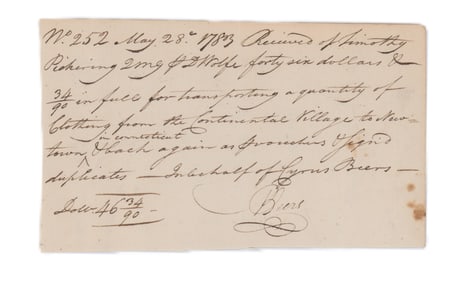 No 252 May 28th 1783 Received of Timothy
Pickering 2mg pr D Wolfe forty six dollars &
34/90 in full for transporting a quantity of
Clothing from the Continental Village to New-
in connecticut
town ^ & back again as pr vouchers & sign'd
duplicates — In behalf of Cyrus Beers —
Doll. 46 34/90 —
Beers